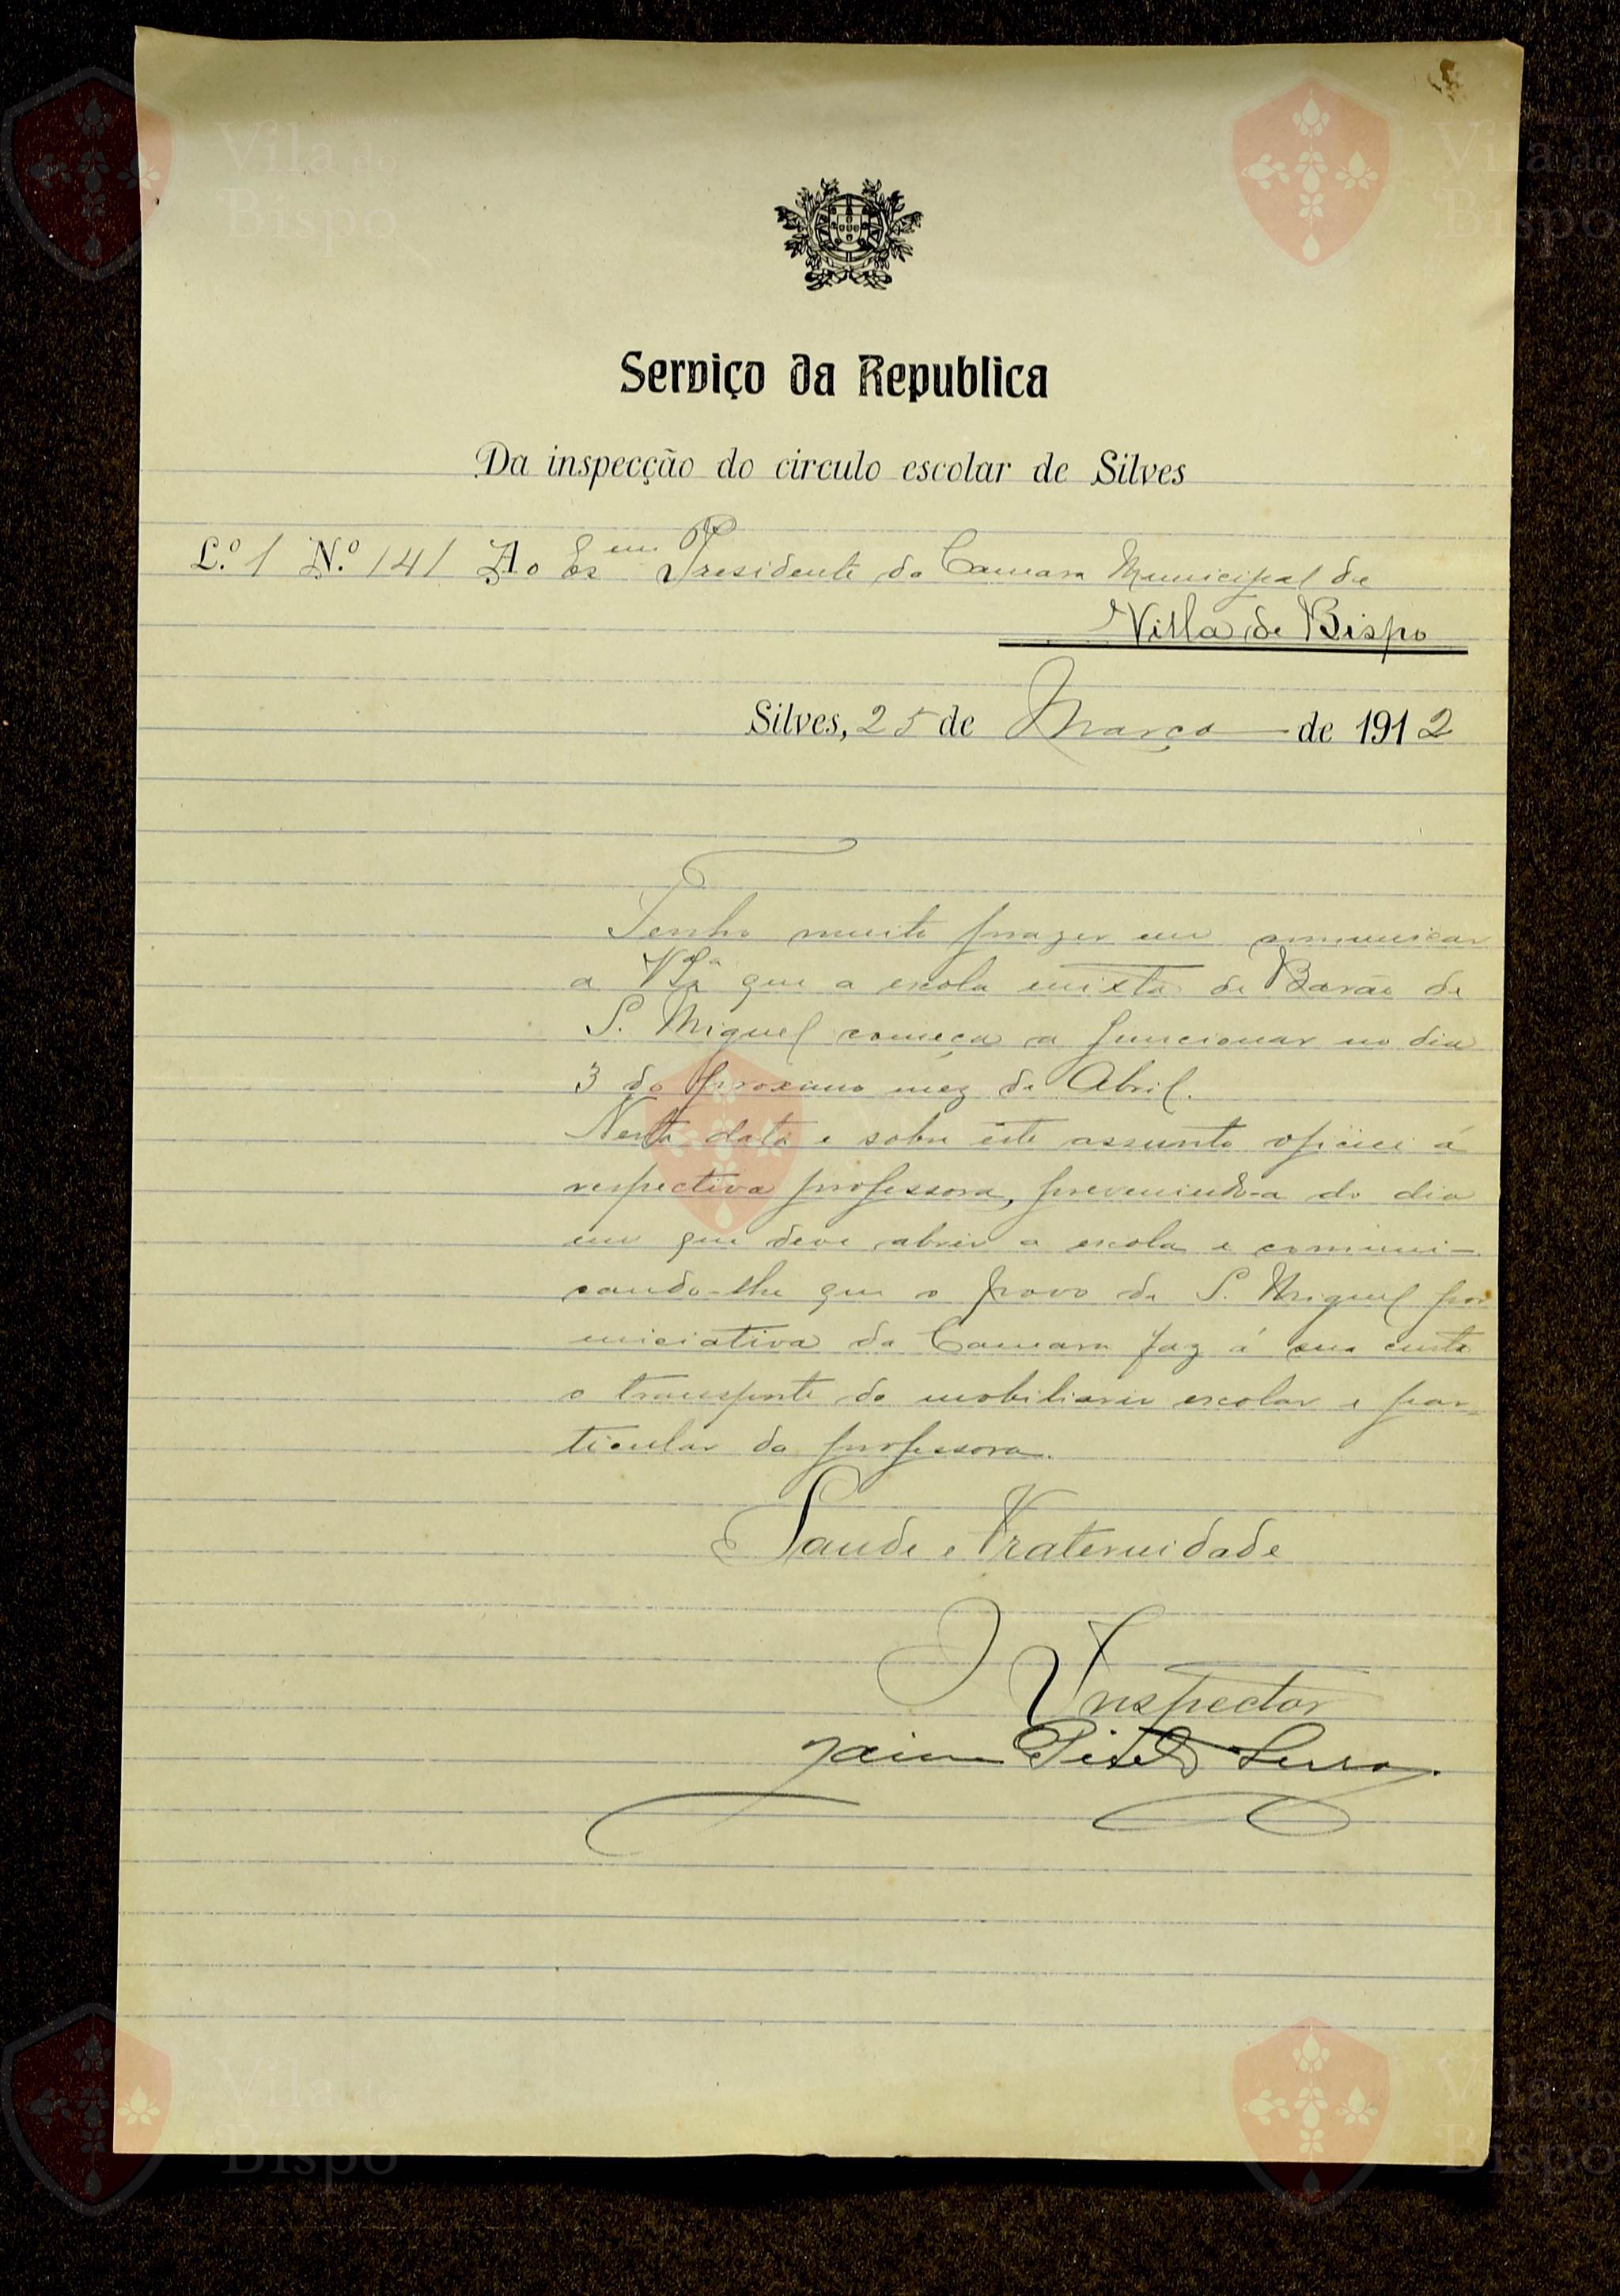 Serviço da Republica
Da inspecção do circulo escolar de Silves
L.º 1 N.º 141 Ao Ex.mo Presidente da Camara Municipal de
Villa do Bispo
Silves, 25 de Março de 1912
Tenho muito prazer em comunicar
a V. Sª que a escola mixta de Barão de
S. Miguel começa a funcionar no dia
3 do proximo mez de Abril.
Nesta data e sobre este assunto oficiei á
respectiva professora, prevenindo-a do dia
em que deve abrir a escola e comuni-
cando-lhe que o povo de S. Miguel por
iniciativa da Camara faz á sua custa
o transporte do mobiliario escolar e par-
ticular da professora.
Saude e Fraternidade
O Inspector
Jaime Serra
Vila do
Bispo
Vila do
Bispo
Vila do
Bispo
Vila do
Bispo